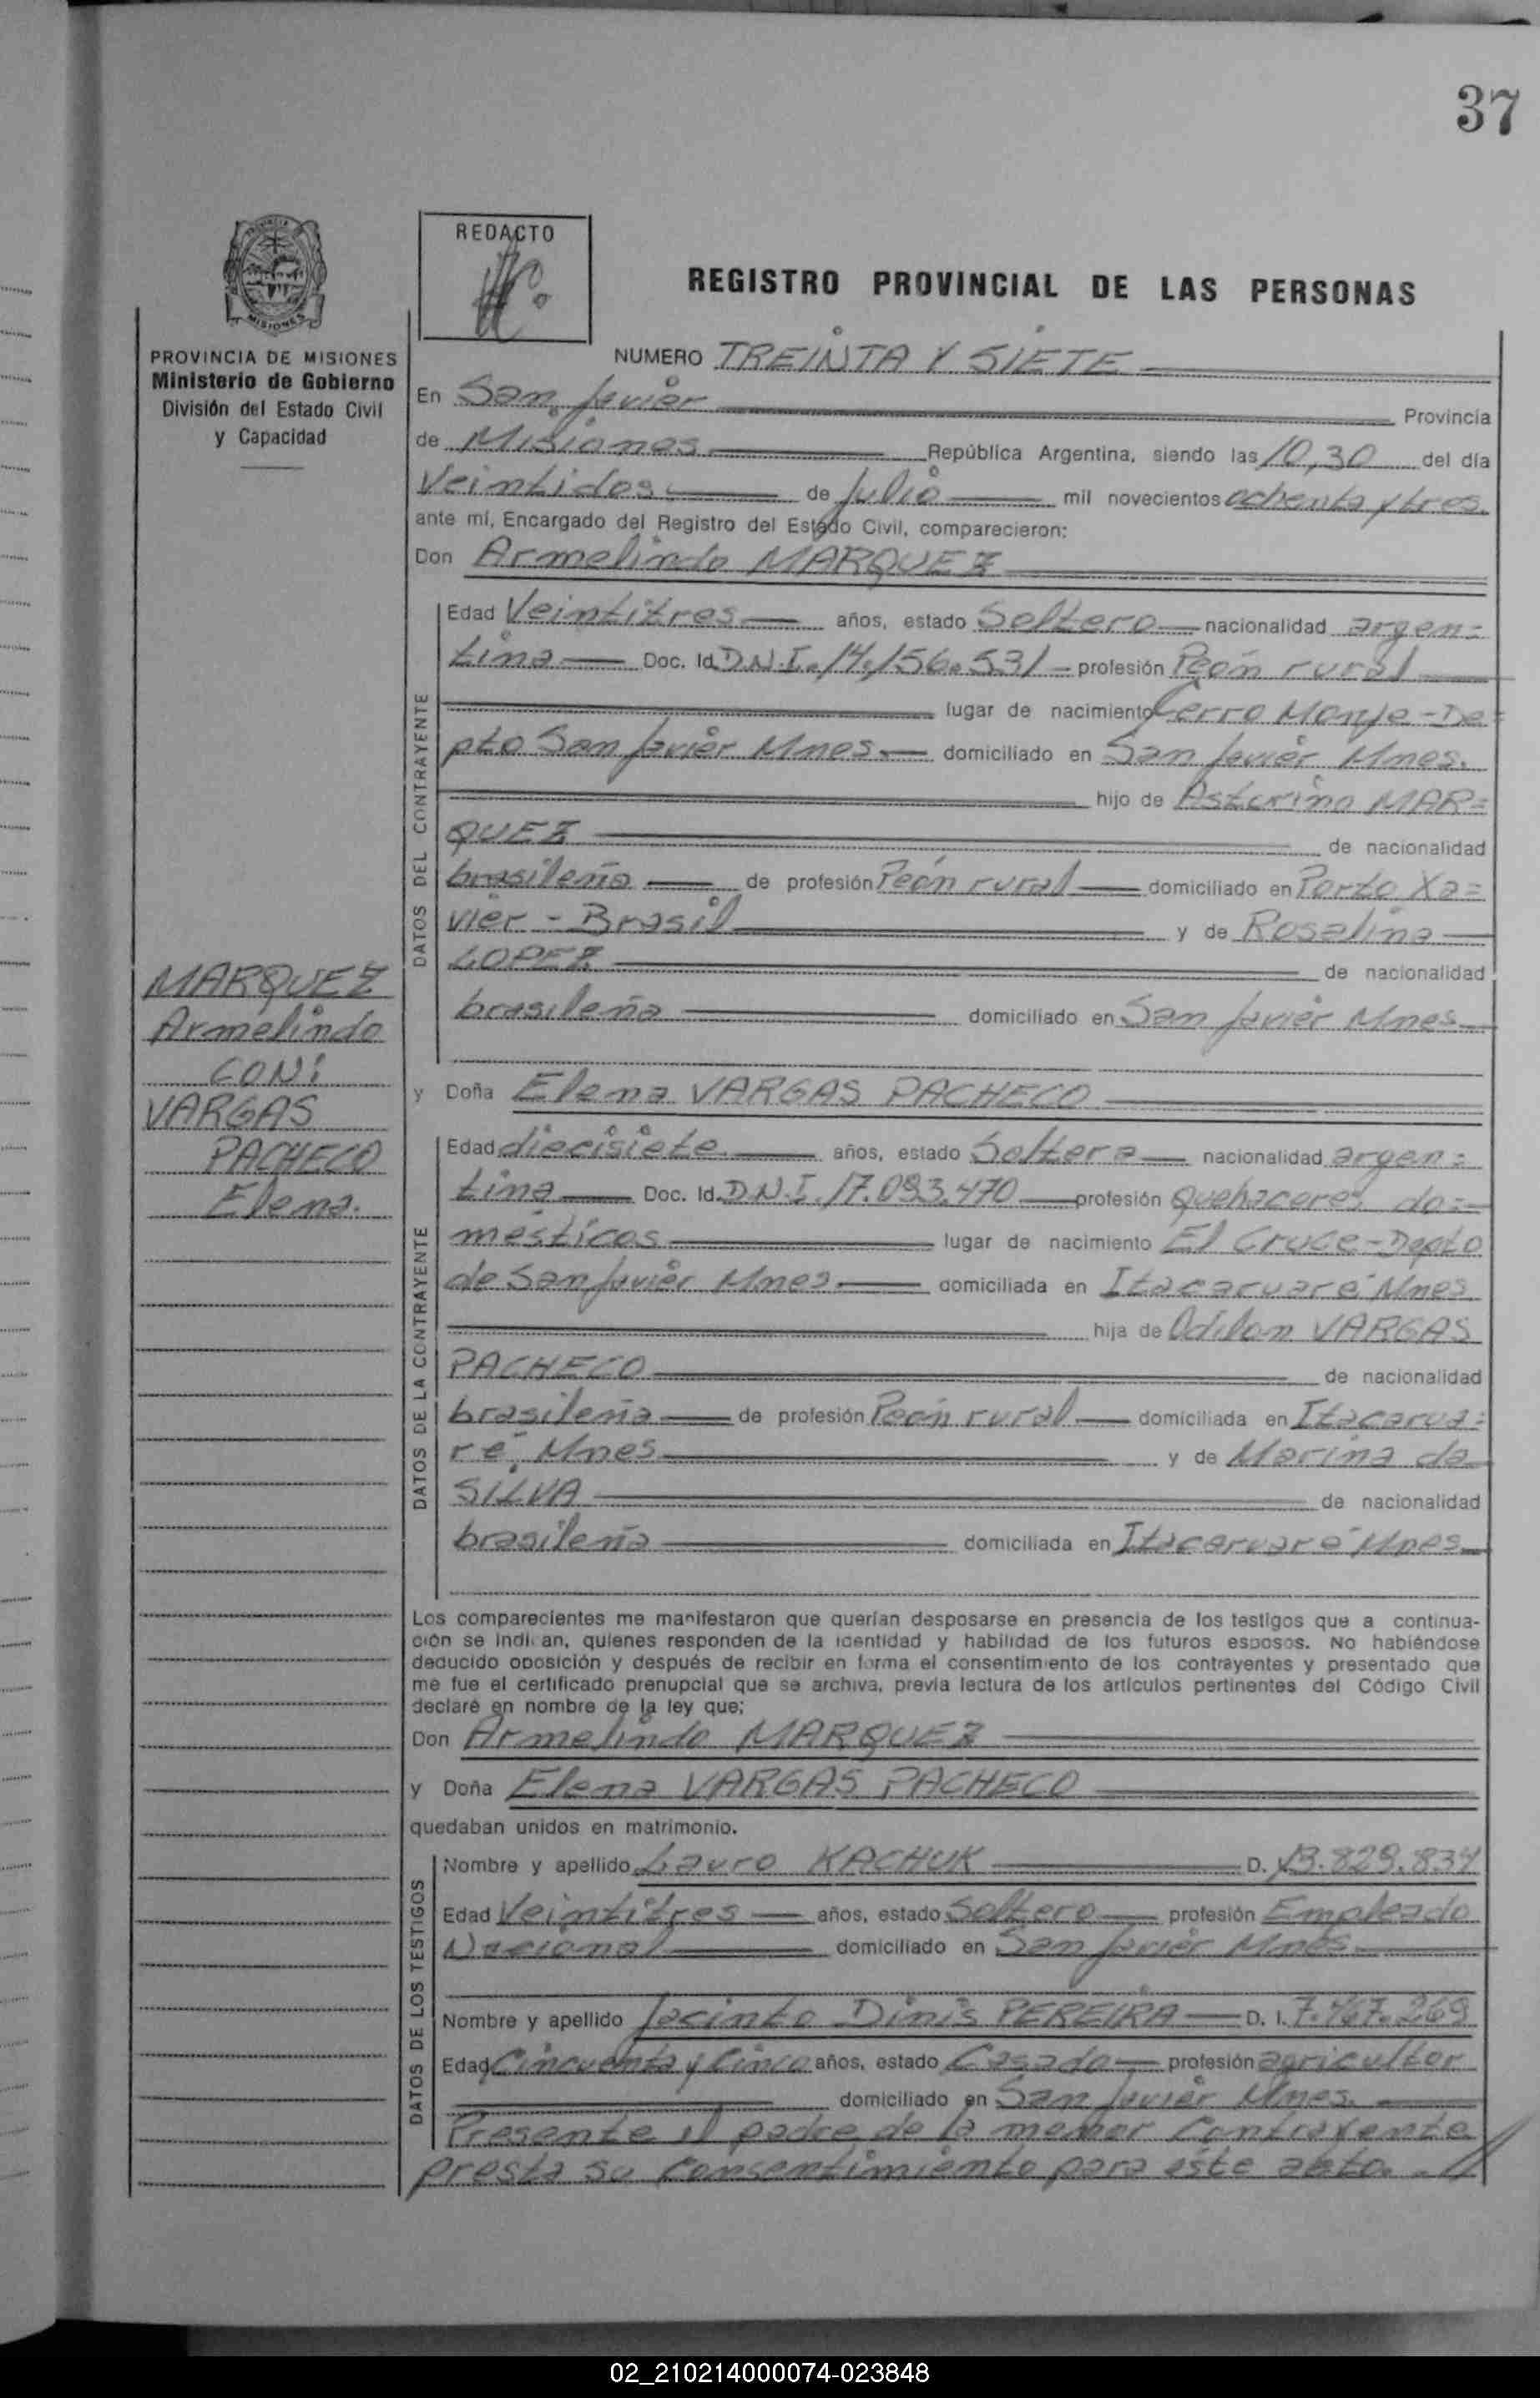 37
REDACTO
REGISTRO PROVINCIAL DE LAS PERSONAS
PROVINCIA DE MISIONES
Ministerio de Gobierno
División del Estado Civil
y Capacidad
MARQUEZ
Armelindo
CON:
VARGAS
PACHECO
Elena.
NUMERO TREINTA Y SIETE
En San Javier Provincia
de Misiones República Argentina, siendo las 10,30 del día
Veintidos de Julio mil novecientos ochenta y tres.
ante mí, Encargado del Registro del Estado Civil, comparecieron:
Don Armelindo MARQUEZ
DATOS DEL CONTRAYENTE
Edad Veintitres años, estado Soltero nacionalidad argen=
tina Doc. Id. D.N.I. 14.156.531 profesión Peón rural
lugar de nacimiento Cerro Monje - De=
pto San Javier Mnes. domiciliado en San Javier Mnes.
hijo de Asturino MAR=
QUEZ de nacionalidad
brasileña de profesión Peón rural domiciliado en Porto Xa=
vier - Brasil y de Rosalina
LOPEZ de nacionalidad
brasileña domiciliado en San Javier Mnes
y Doña Elena VARGAS PACHECO
DATOS DE LA CONTRAYENTE
Edad diecisiete años, estado Soltera nacionalidad argen=
tina Doc. Id. D.N.I. 17.093.470 profesión quehaceres do=
mésticos lugar de nacimiento El Cruce - Depto
de San Javier Mnes domiciliada en Itacaruaré Mnes
hija de Odilon VARGAS
PACHECO de nacionalidad
brasileña de profesión Peón rural domiciliada en Itacarua=
ré, Mnes y de Marina da
SILVA de nacionalidad
brasileña domiciliada en Itacaruaré Mnes
Los comparecientes me manifestaron que querían desposarse en presencia de los testigos que a continua-
ción se indican, quienes responden de la identidad y habilidad de los futuros esposos. No habiéndose
deducido oposición y después de recibir en forma el consentimiento de los contrayentes y presentado que
me fue el certificado prenupcial que se archiva, previa lectura de los artículos pertinentes del Código Civil
declaré en nombre de la ley que:
Don Armelindo MARQUEZ
y Doña Elena VARGAS PACHECO
quedaban unidos en matrimonio.
DATOS DE LOS TESTIGOS
Nombre y apellido Lauro KACHUK D. 13.829.834
Edad Veintitres años, estado Soltero profesión Empleado
Nacional domiciliado en San Javier Mnes
Nombre y apellido Jacinto Dinis PEREIRA D. I. 7.467.269
Edad Cincuenta y Cinco años, estado Casado profesión agricultor
domiciliado en San Javier Mnes.
Presente el padre de la menor Contrayente
presta su Consentimiento para éste acto.
02_210214000074-023848